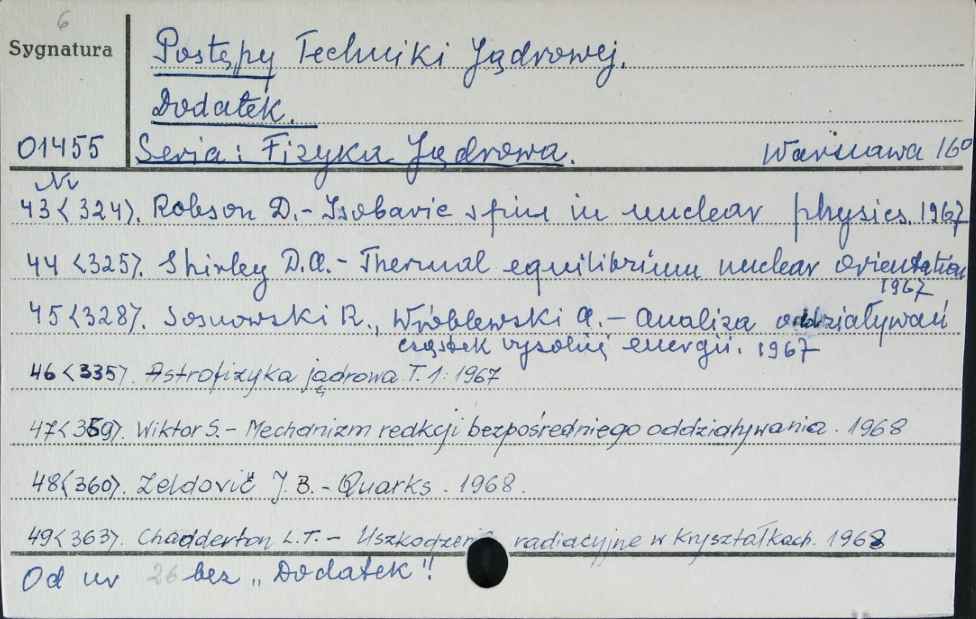 6
Sygnatura
Postępy Techniki Jądrowej.
Dodatek.
01455 Seria: Fizyka Jądrowa. Warszawa 16°
Nr
43<324>. Robson D.- Isobaric spin in nuclear physics. 1967
44 <325>. Shirley D.A.- Thermal equilibrium nuclear orientation
1967
45<328>. Sosnowski R., Wróblewski A.- Analiza oddziaływań
cząstek wysokiej energii. 1967
46 <335>. Astrofizyka jądrowa T.1. 1967
47<359>. Wiktor S.- Mechanizm reakcji bezpośredniego oddziaływania. 1968
48<360>. Zeldovič J.B.- Quarks. 1968.
49<363>. Chadderton L.T.- Uszkodzenia radiacyjne w kryształkach. 1968
Od nr 26 bez „Dodatek"!